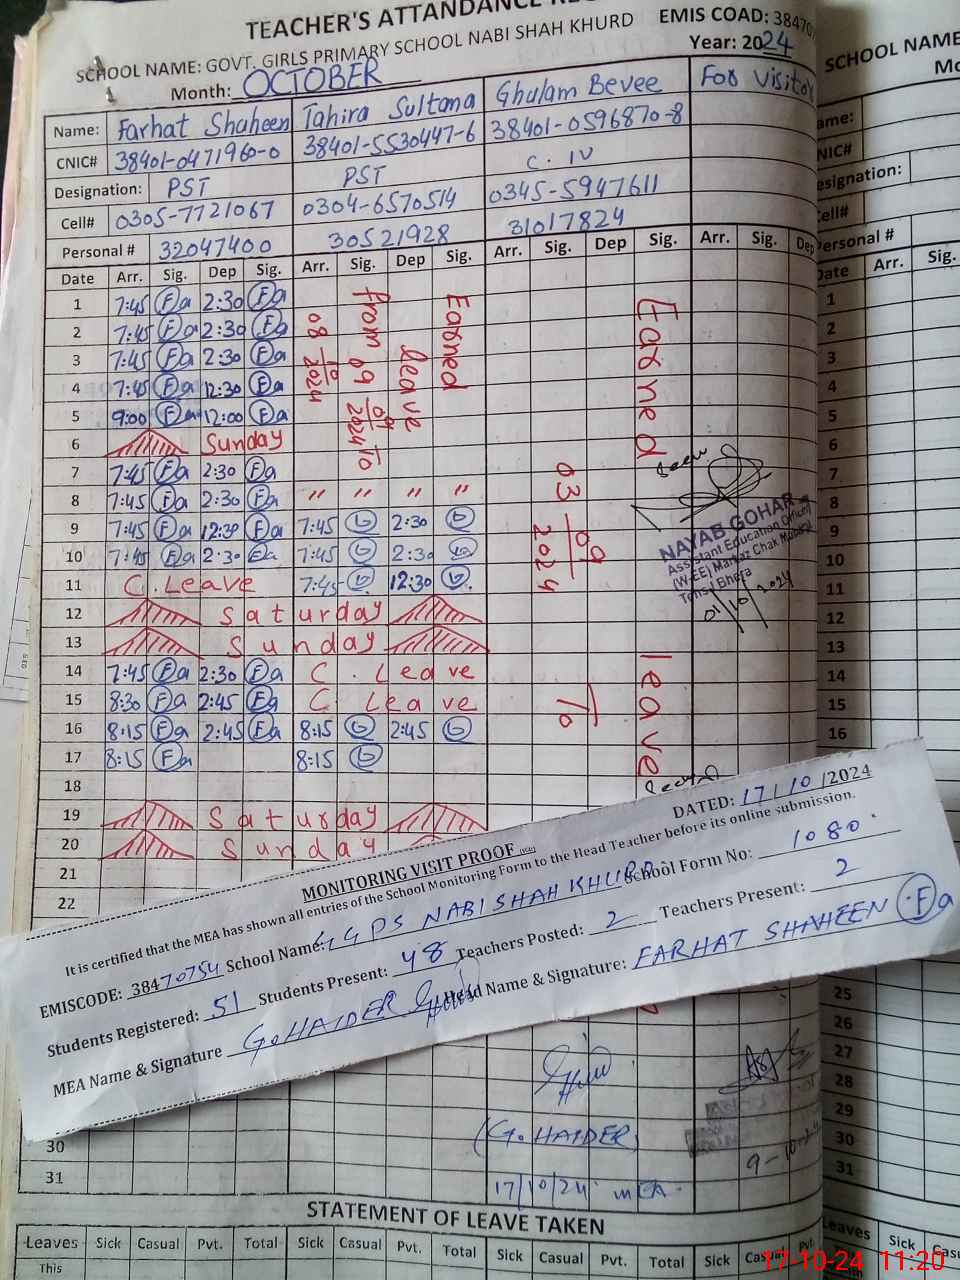 TEACHER'S ATTANDANCE
EMIS COAD: 38470
SCHOOL NAME: GOVT. GIRLS PRIMARY SCHOOL NABI SHAH KHURD
Year: 2024
Month: OCTOBER
Name: Farhat Shaheen Tahira Sultana Ghulam Bevee For Visitor
CNIC# 38401-0471960-0 38401-5530447-6 38401-0596870-8
Designation: PST PST C. IV
Cell# 0305-7721067 0304-6570514 0345-5947611
Personal # 32047400 30521928 31017824
Date Arr. Sig. Dep Sig. Arr. Sig. Dep Sig. Arr. Sig. Dep Sig. Arr. Sig. Dep
1 7:45 Fa 2:30 Fa
2 7:45 Fa 2:30 Fa
3 7:45 Fa 2:30 Fa
4 7:45 Fa 12:30 Fa
5 9:00 Fa 12:00 Fa
6 Sunday
7 7:45 Fa 2:30 Fa
8 7:45 Fa 2:30 Fa " " " "
9 7:45 Fa 12:30 Fa 7:45 2:30
10 7:45 Fa 2:30 Fa 7:45 2:30
11 C. Leave 7:45 12:30
12 Saturday
13 Sunday
14 7:45 Fa 2:30 Fa C. Leave
15 8:30 Fa 2:45 Fa C. Leave
16 8:15 Fa 2:45 Fa 8:15 2:45
17 8:15 Fa 8:15
18
19 Saturday
20 Sunday
21
22
Earned leave
From 09/09/2024 To
08/10/2024
Earned leave
03/09/2024 To
Seen
NAYAB GOHAR
Assistant Education Officer
(W-EE) Markaz Chak Mubarak
Tehsil Bhera
01/10/2024
MONITORING VISIT PROOF
DATED: 17/10/2024
It is certified that the MEA has shown all entries of the School Monitoring Form to the Head Teacher before its online submission.
EMISCODE: 38470754 School Name: GGPS NABI SHAH KHURD School Form No: 1080.
Students Registered: 51 Students Present: 48 Teachers Posted: 2 Teachers Present: 2
MEA Name & Signature G. HAIDER Head Name & Signature: FARHAT SHAHEEN Fa
(G. HAIDER)
17/10/24 MEA.
9-10-24
30
31
STATEMENT OF LEAVE TAKEN
Leaves Sick Casual Pvt. Total Sick Casual Pvt. Total Sick Casual Pvt. Total Sick Casual Pvt
This
SCHOOL NAME
Name:
CNIC#
Designation:
Cell#
Personal #
Date Arr. Sig.
1
2
3
4
5
6
7
8
9
10
11
12
13
14
15
16
25
26
27
28
29
30
31
Leaves Sick
17-10-24 11:20